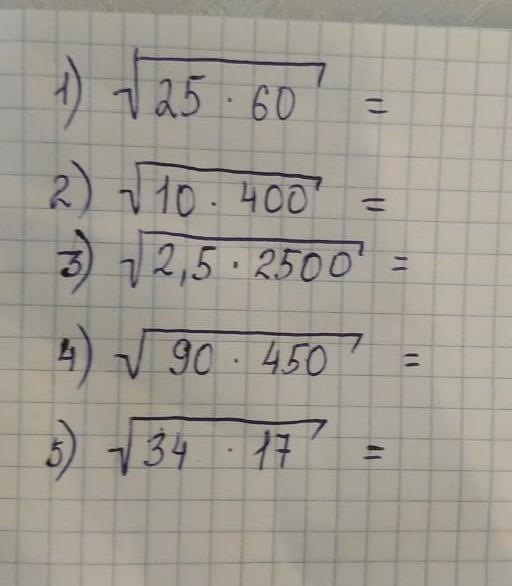 1) √25 · 60 =
2) √10 · 400 =
3) √2,5 · 2500 =
4) √90 · 450 =
5) √34 · 17 =